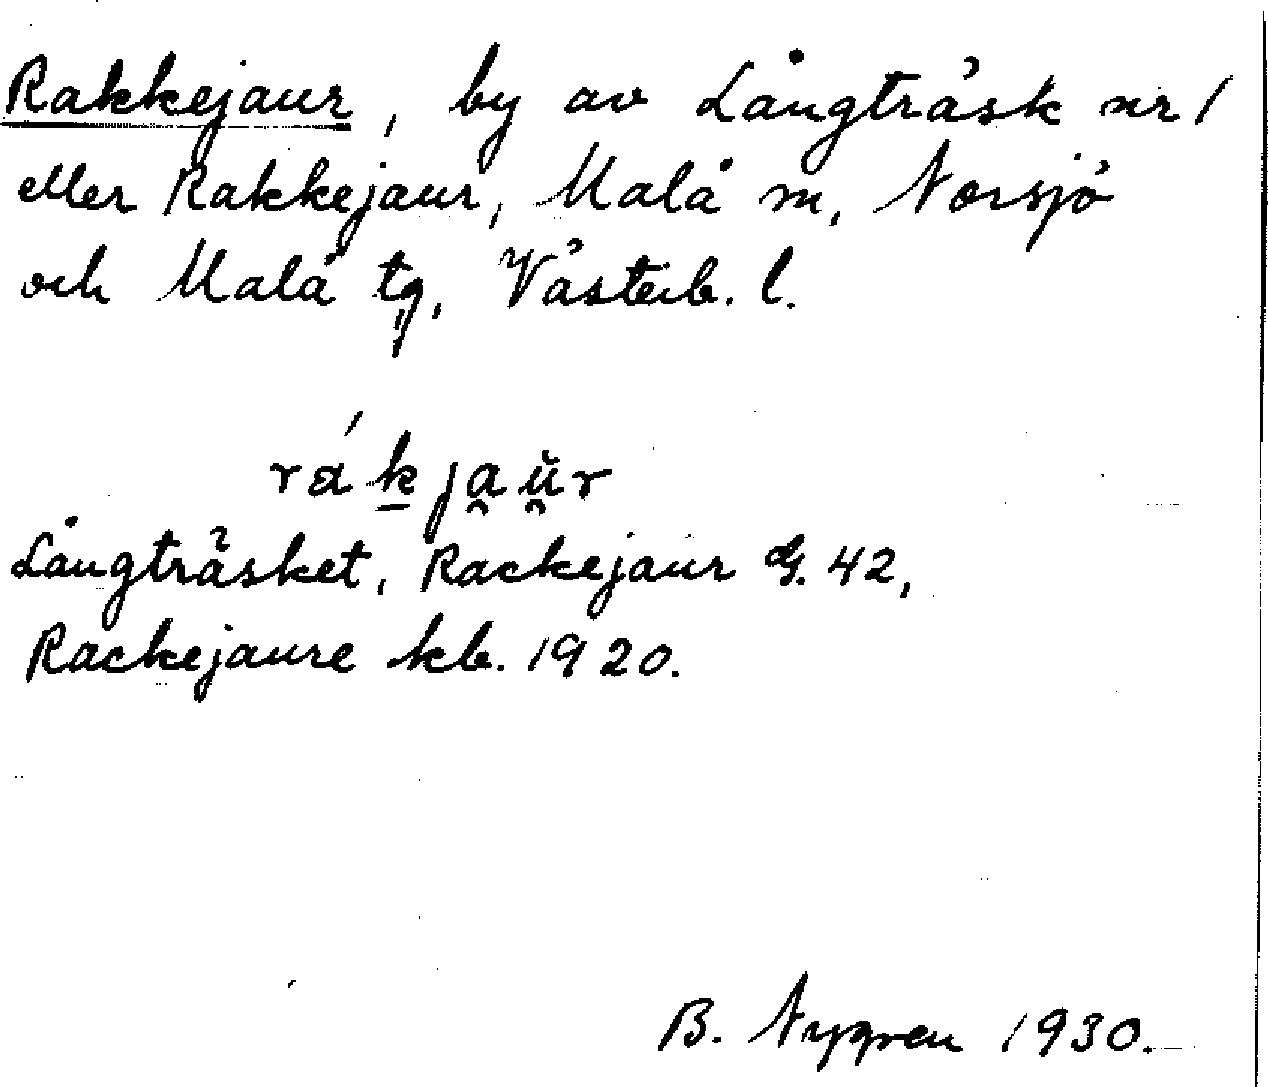 Rakkejaur, by av Långträsk nr 1
eller Rakkejaur, Malå m, Norsjö
och Malå tg, Västerb. l.
rákja̯ŭ̯r
Långträsket, Rackejaur G. 42,
Rackejaure kb. 1920.
B. Nygren 1930.